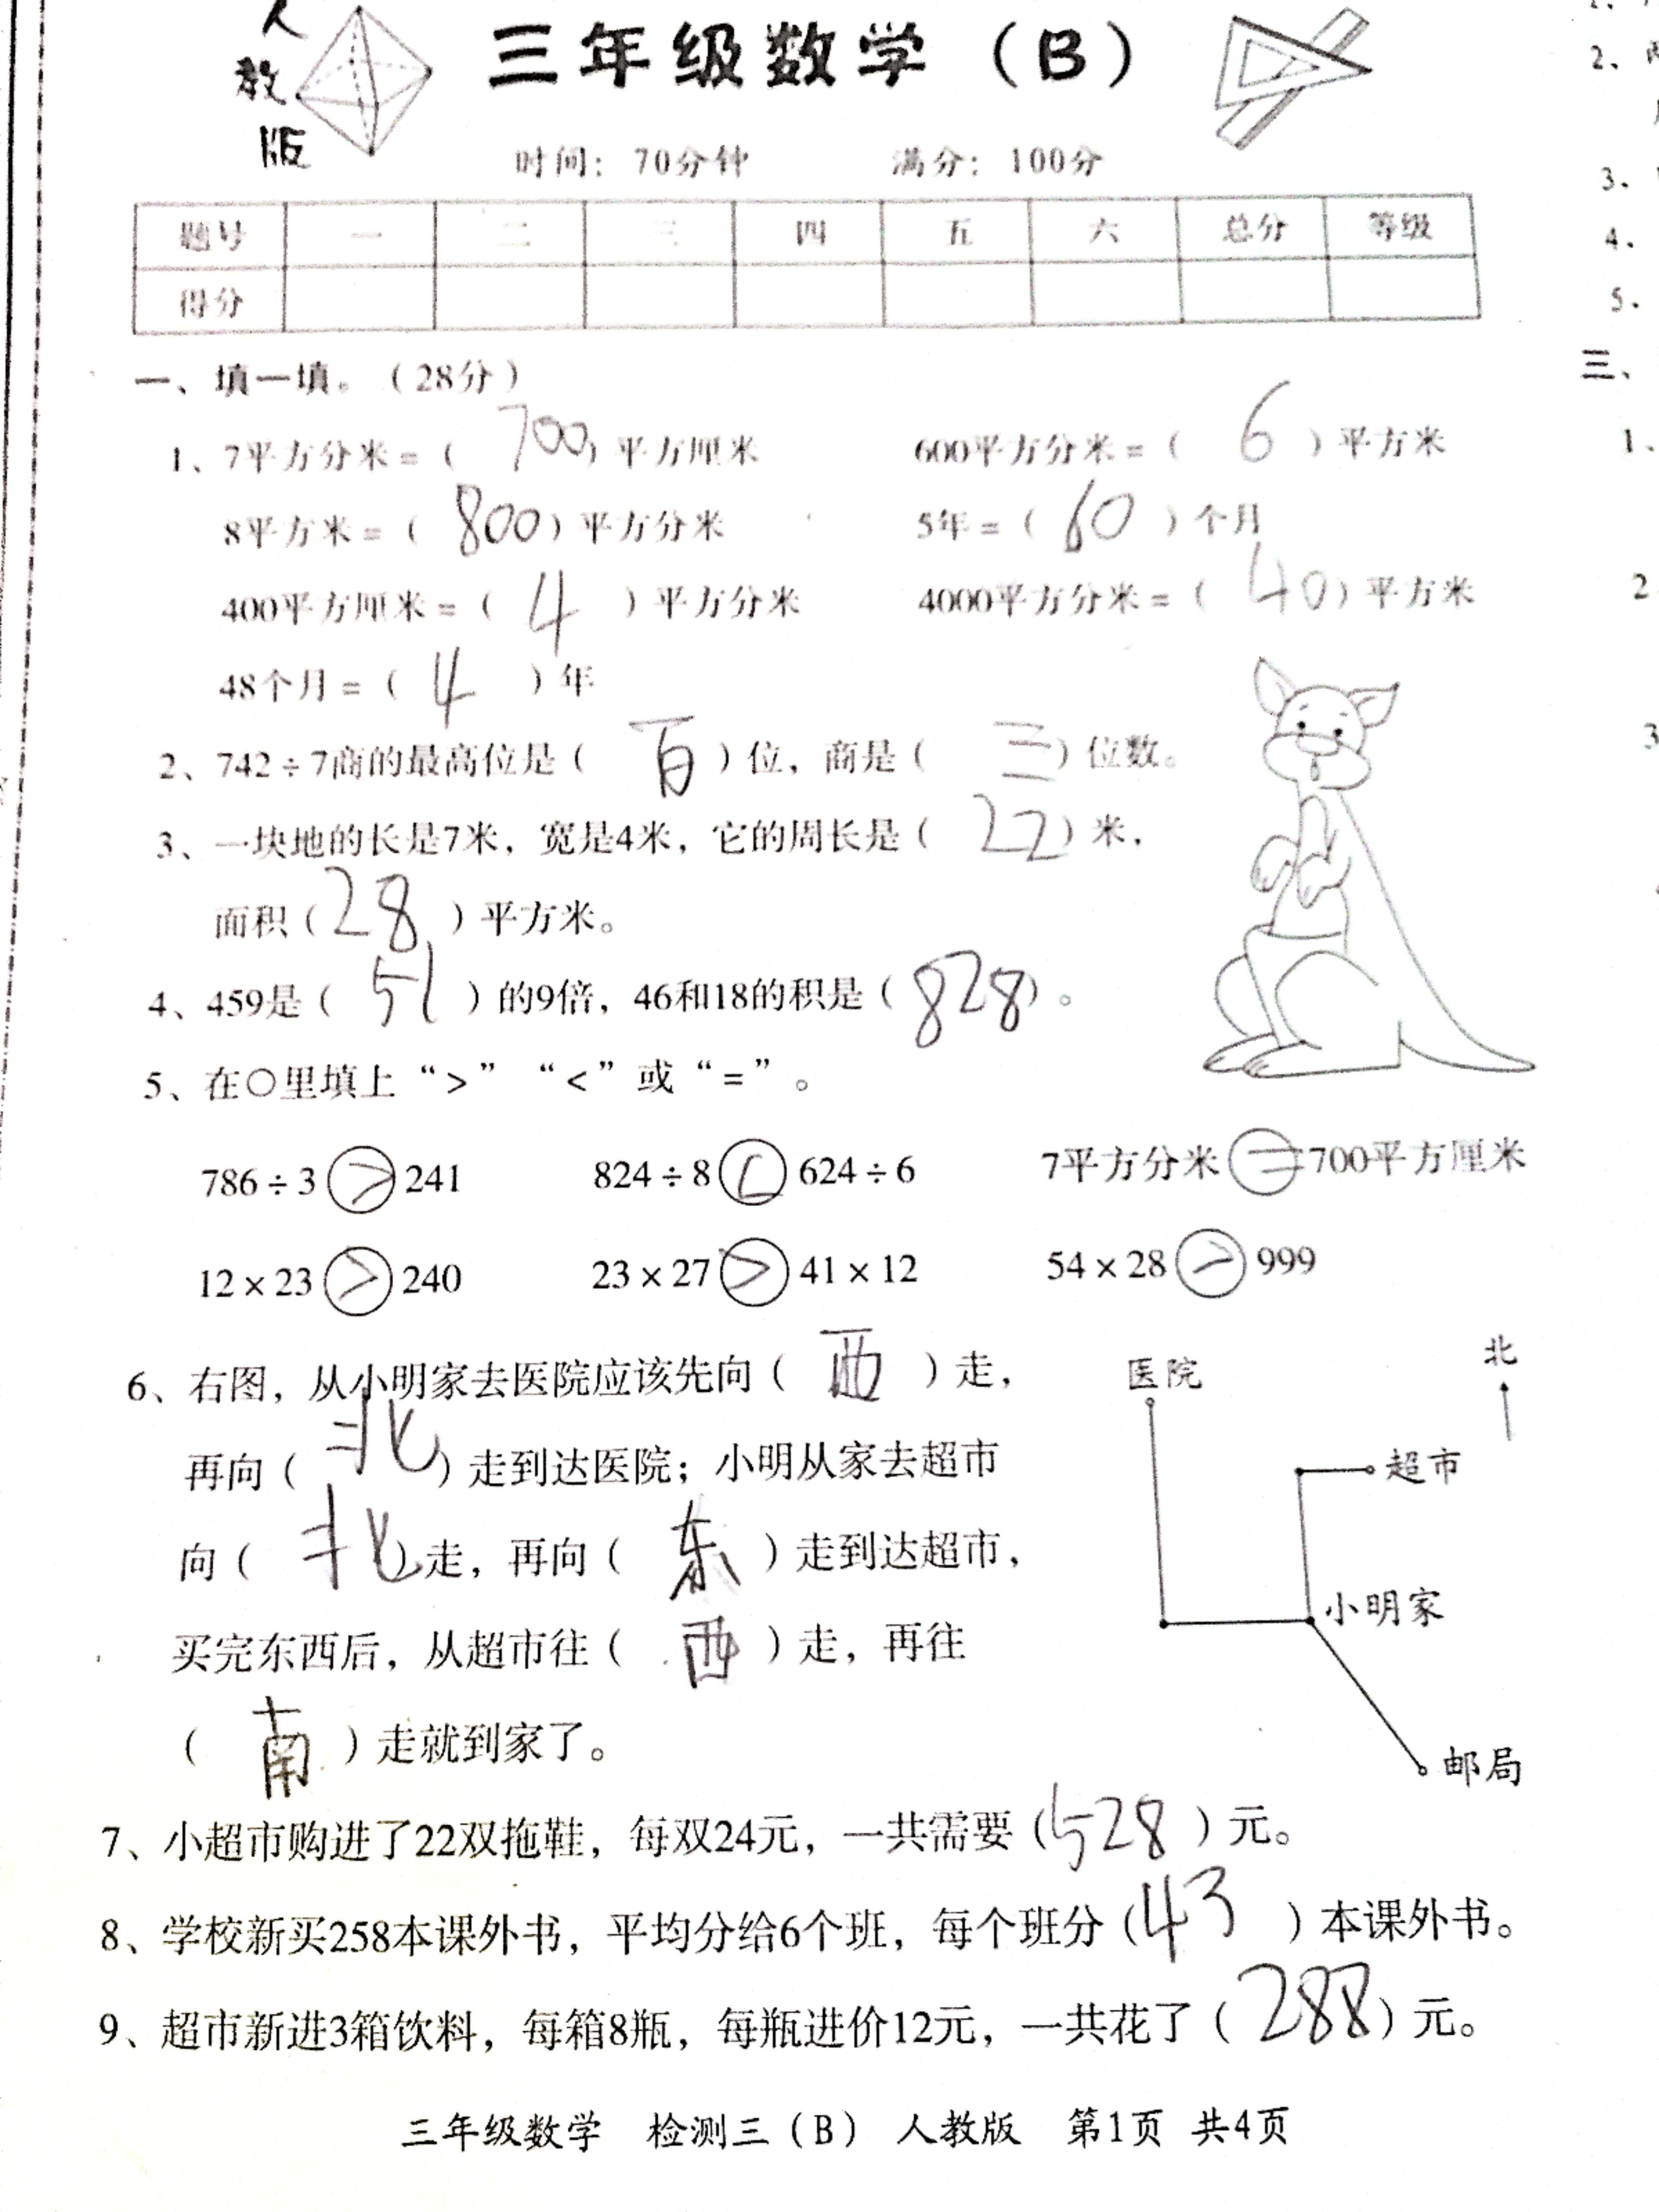 人教版
三年级数学（B）
时间：70分钟 满分：100分
题号 一 二 三 四 五 六 总分 等级
得分
一、填一填。（28分）
1、7平方分米=（700）平方厘米 600平方分米=（6）平方米
8平方米=（800）平方分米 5年=（60）个月
400平方厘米=（4）平方分米 4000平方分米=（40）平方米
48个月=（4）年
2、742÷7商的最高位是（百）位，商是（三）位数。
3、一块地的长是7米，宽是4米，它的周长是（22）米，
面积（28）平方米。
4、459是（51）的9倍，46和18的积是（828）。
5、在○里填上“>”“<”或“=”。
786÷3>241 824÷8<624÷6 7平方分米=700平方厘米
12×23>240 23×27>41×12 54×28>999
6、右图，从小明家去医院应该先向（西）走，
再向（北）走到达医院；小明从家去超市
向（北）走，再向（东）走到达超市，
买完东西后，从超市往（西）走，再往
（南）走就到家了。
医院
北
超市
小明家
邮局
7、小超市购进了22双拖鞋，每双24元，一共需要（528）元。
8、学校新买258本课外书，平均分给6个班，每个班分（43）本课外书。
9、超市新进3箱饮料，每箱8瓶，每瓶进价12元，一共花了（288）元。
三年级数学 检测三（B） 人教版 第1页 共4页
2、
3、
4、
5、
三、
1、
2
3